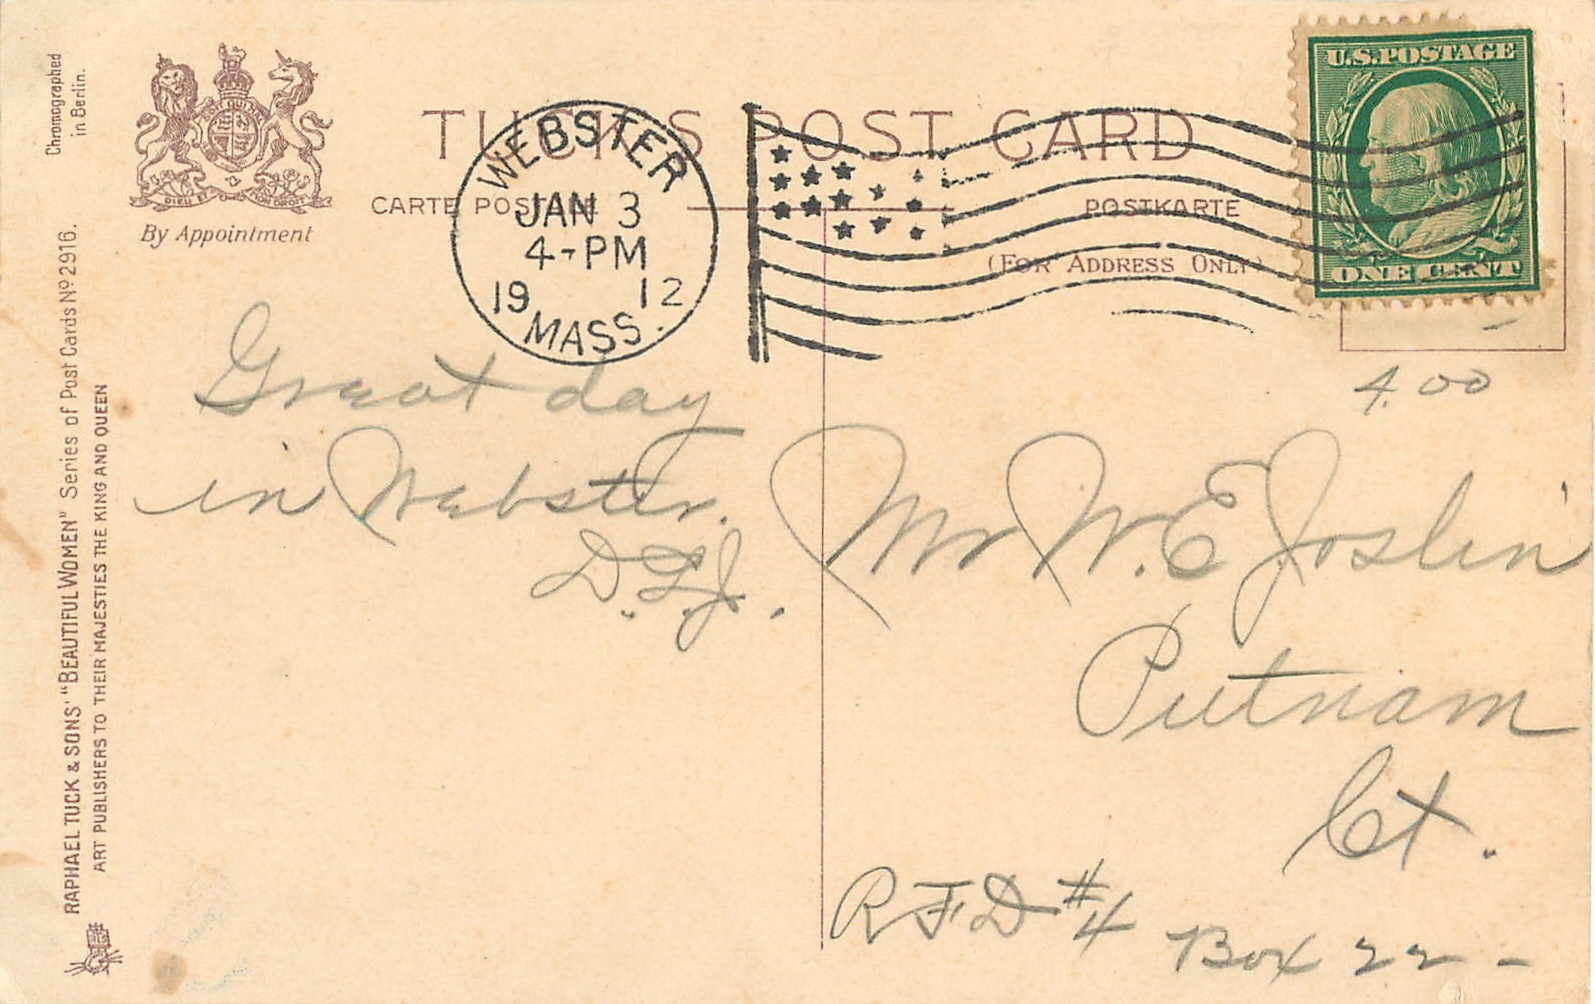 Chromographed
in Berlin.
DIEU ET MON DROIT
By Appointment
TUCK'S POST CARD
CARTE POSTALE
POSTKARTE
(FOR ADDRESS ONLY)
WEBSTER
JAN 3
4-PM
19 12
MASS.
U.S.POSTAGE
ONE CENT
RAPHAEL TUCK & SONS' "BEAUTIFUL WOMEN" Series of Post Cards Nº 2916.
ART PUBLISHERS TO THEIR MAJESTIES THE KING AND QUEEN
4.00
Great day
in Webster.
D.L.J.
Mr W. E Joslin
Putnam
Ct.
RFD #4 Box 22-